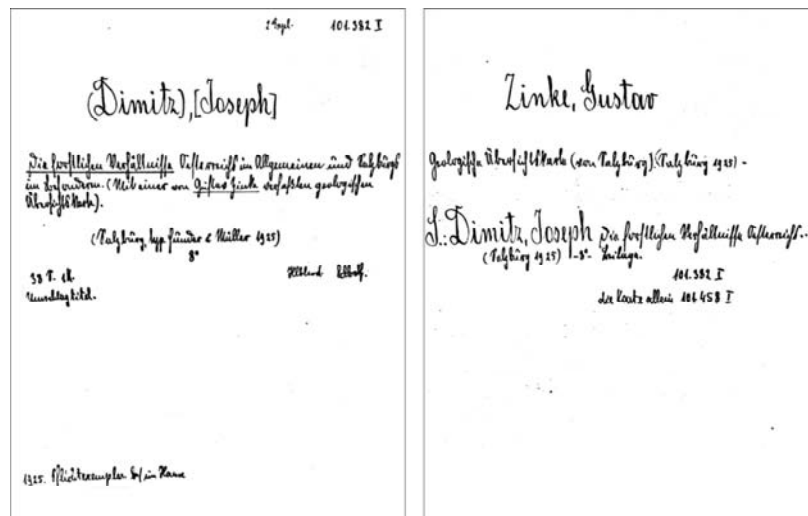 2 Expl. 101.382 I
(Dimitz), [Joseph]
Die forstlichen Verhältnisse Österreichs im Allgemeinen und Salzburgs
im besondern. (Mit einer von Gustav Zinke verfaßten geologischen
Übersichtskarte).
(Salzburg, typ. Funder & Müller 1925)
8°
38 S. 1 K.
Umschlagtitel.
1925. Pflichtexemplar
Zinke, Gustav
Geologische Übersichtskarte (von Salzburg). (Salzburg 1925) -
S.: Dimitz, Joseph Die forstlichen Verhältnisse Österreichs...
(Salzburg 1925) -8°- Beilage.
101.382 I
die Karte allein 101.458 I